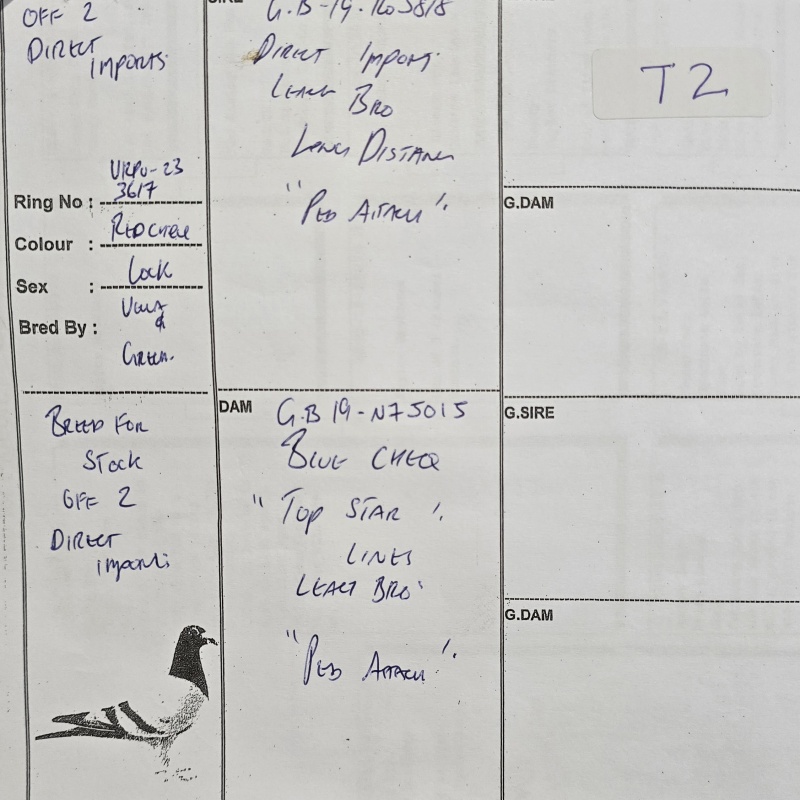 OFF 2
DIRECT
IMPORTS
Ring No :
URPU-23
3617
Colour :
RED CHEQ
Sex :
COCK
Bred By :
&
GREEN.
BREED FOR
STOCK
OFF 2
DIRECT
IMPORTS
SIRE
G.B-19-R05818
DIRECT IMPORT
LEACT BRO
LONG DISTANCE
"PED ATTACH".
DAM
G.B 19-N75015
BLUE CHEQ
"TOP STAR".
LINES
LEACT BRO
"PED ATTACH".
T2
G.DAM
G.SIRE
G.DAM